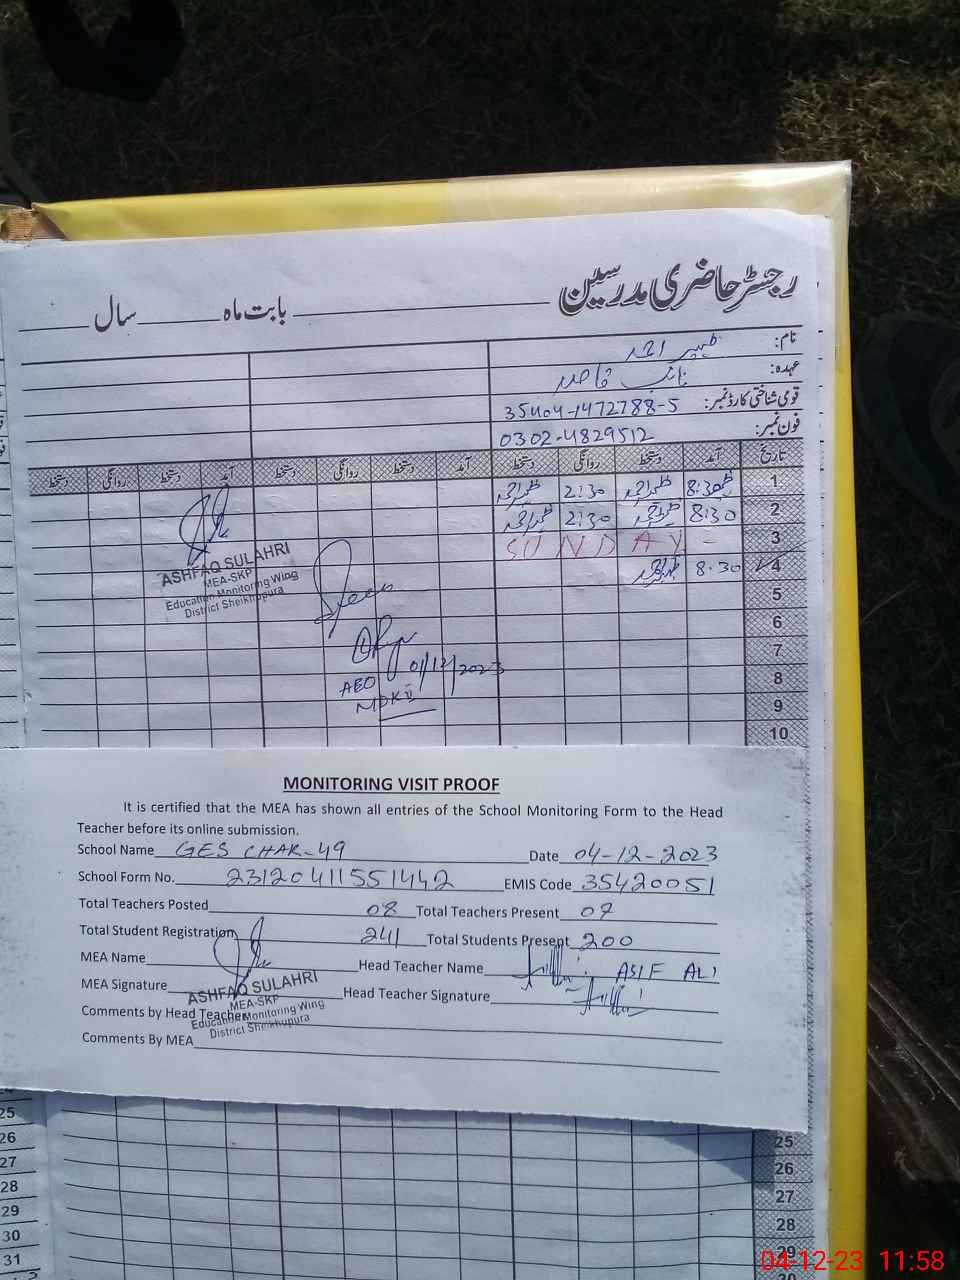 رجسٹر حاضری مدرسین
بابت ماہ سال
نام: ظہیر احمد
عہدہ: نائب قاصد
قومی شناختی کارڈ نمبر: 35404-1472788-5
فون نمبر: 0302-4829512
تاریخ آمد دستخط روانگی دستخط آمد دستخط روانگی دستخط آمد دستخط روانگی دستخط
1 8:30 2:30
2 8:30 2:30
3 SUNDAY
4 8:30
5
6
7
8
9
10
ASHFAQ SULAHRI
MEA-SKP
Education Monitoring Wing
District Sheikhupura
01/12/2023
AEO
MONITORING VISIT PROOF
It is certified that the MEA has shown all entries of the School Monitoring Form to the Head
Teacher before its online submission.
School Name GES CHAK-49 Date 04-12-2023
School Form No. 23120411551442 EMIS Code 35420051
Total Teachers Posted 08 Total Teachers Present 07
Total Student Registration 241 Total Students Present 200
MEA Name Head Teacher Name ASIF ALI
MEA Signature Head Teacher Signature
ASHFAQ SULAHRI
MEA-SKP
Education Monitoring Wing
District Sheikhupura
Comments by Head Teacher
Comments By MEA
25 25
26 26
27 27
28 28
29 29
30
31
04-12-23 11:58